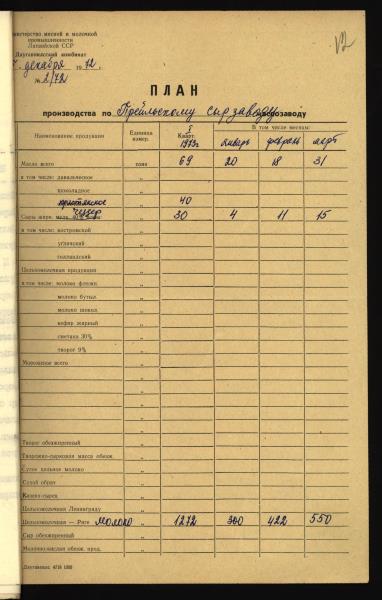 Министерство мясной и молочной
промышленности
Латвийской ССР
Даугавпилсский комбинат
декабря 1972 г.
№ 2/72
12
ПЛАН
производства по Прейльскому сырзаводу заводу
Наименование продукции Единица измер. I Кварт. 1973г В том числе месяцы:
январь февраль март
Масло всего тонн 69 20 18 31
в том числе: давальческое "
шоколадное "
крестьянское " 40
чеддер
Сыры жирн. 30 4 11 15
в том числе: костромской "
угличский "
голландский "
Цельномолочная продукция "
в том числе: молоко фляжн. "
молоко бутыл. "
молоко шокол. "
кефир жирный "
сметана 30% "
творог 9% "
Мороженое всего "
Творог обезжиренный "
Творожно-сырковая масса обезж. "
Сухое цельное молоко "
Сухой обрат "
Казеин-сырец "
Цельномолочная Ленинграду "
Цельномолочная — Риге молоко " 1272 300 422 550
Сыр обезжиренный "
Молочнокислая обезж. прод. "
Даугавпилс. 4718 1000